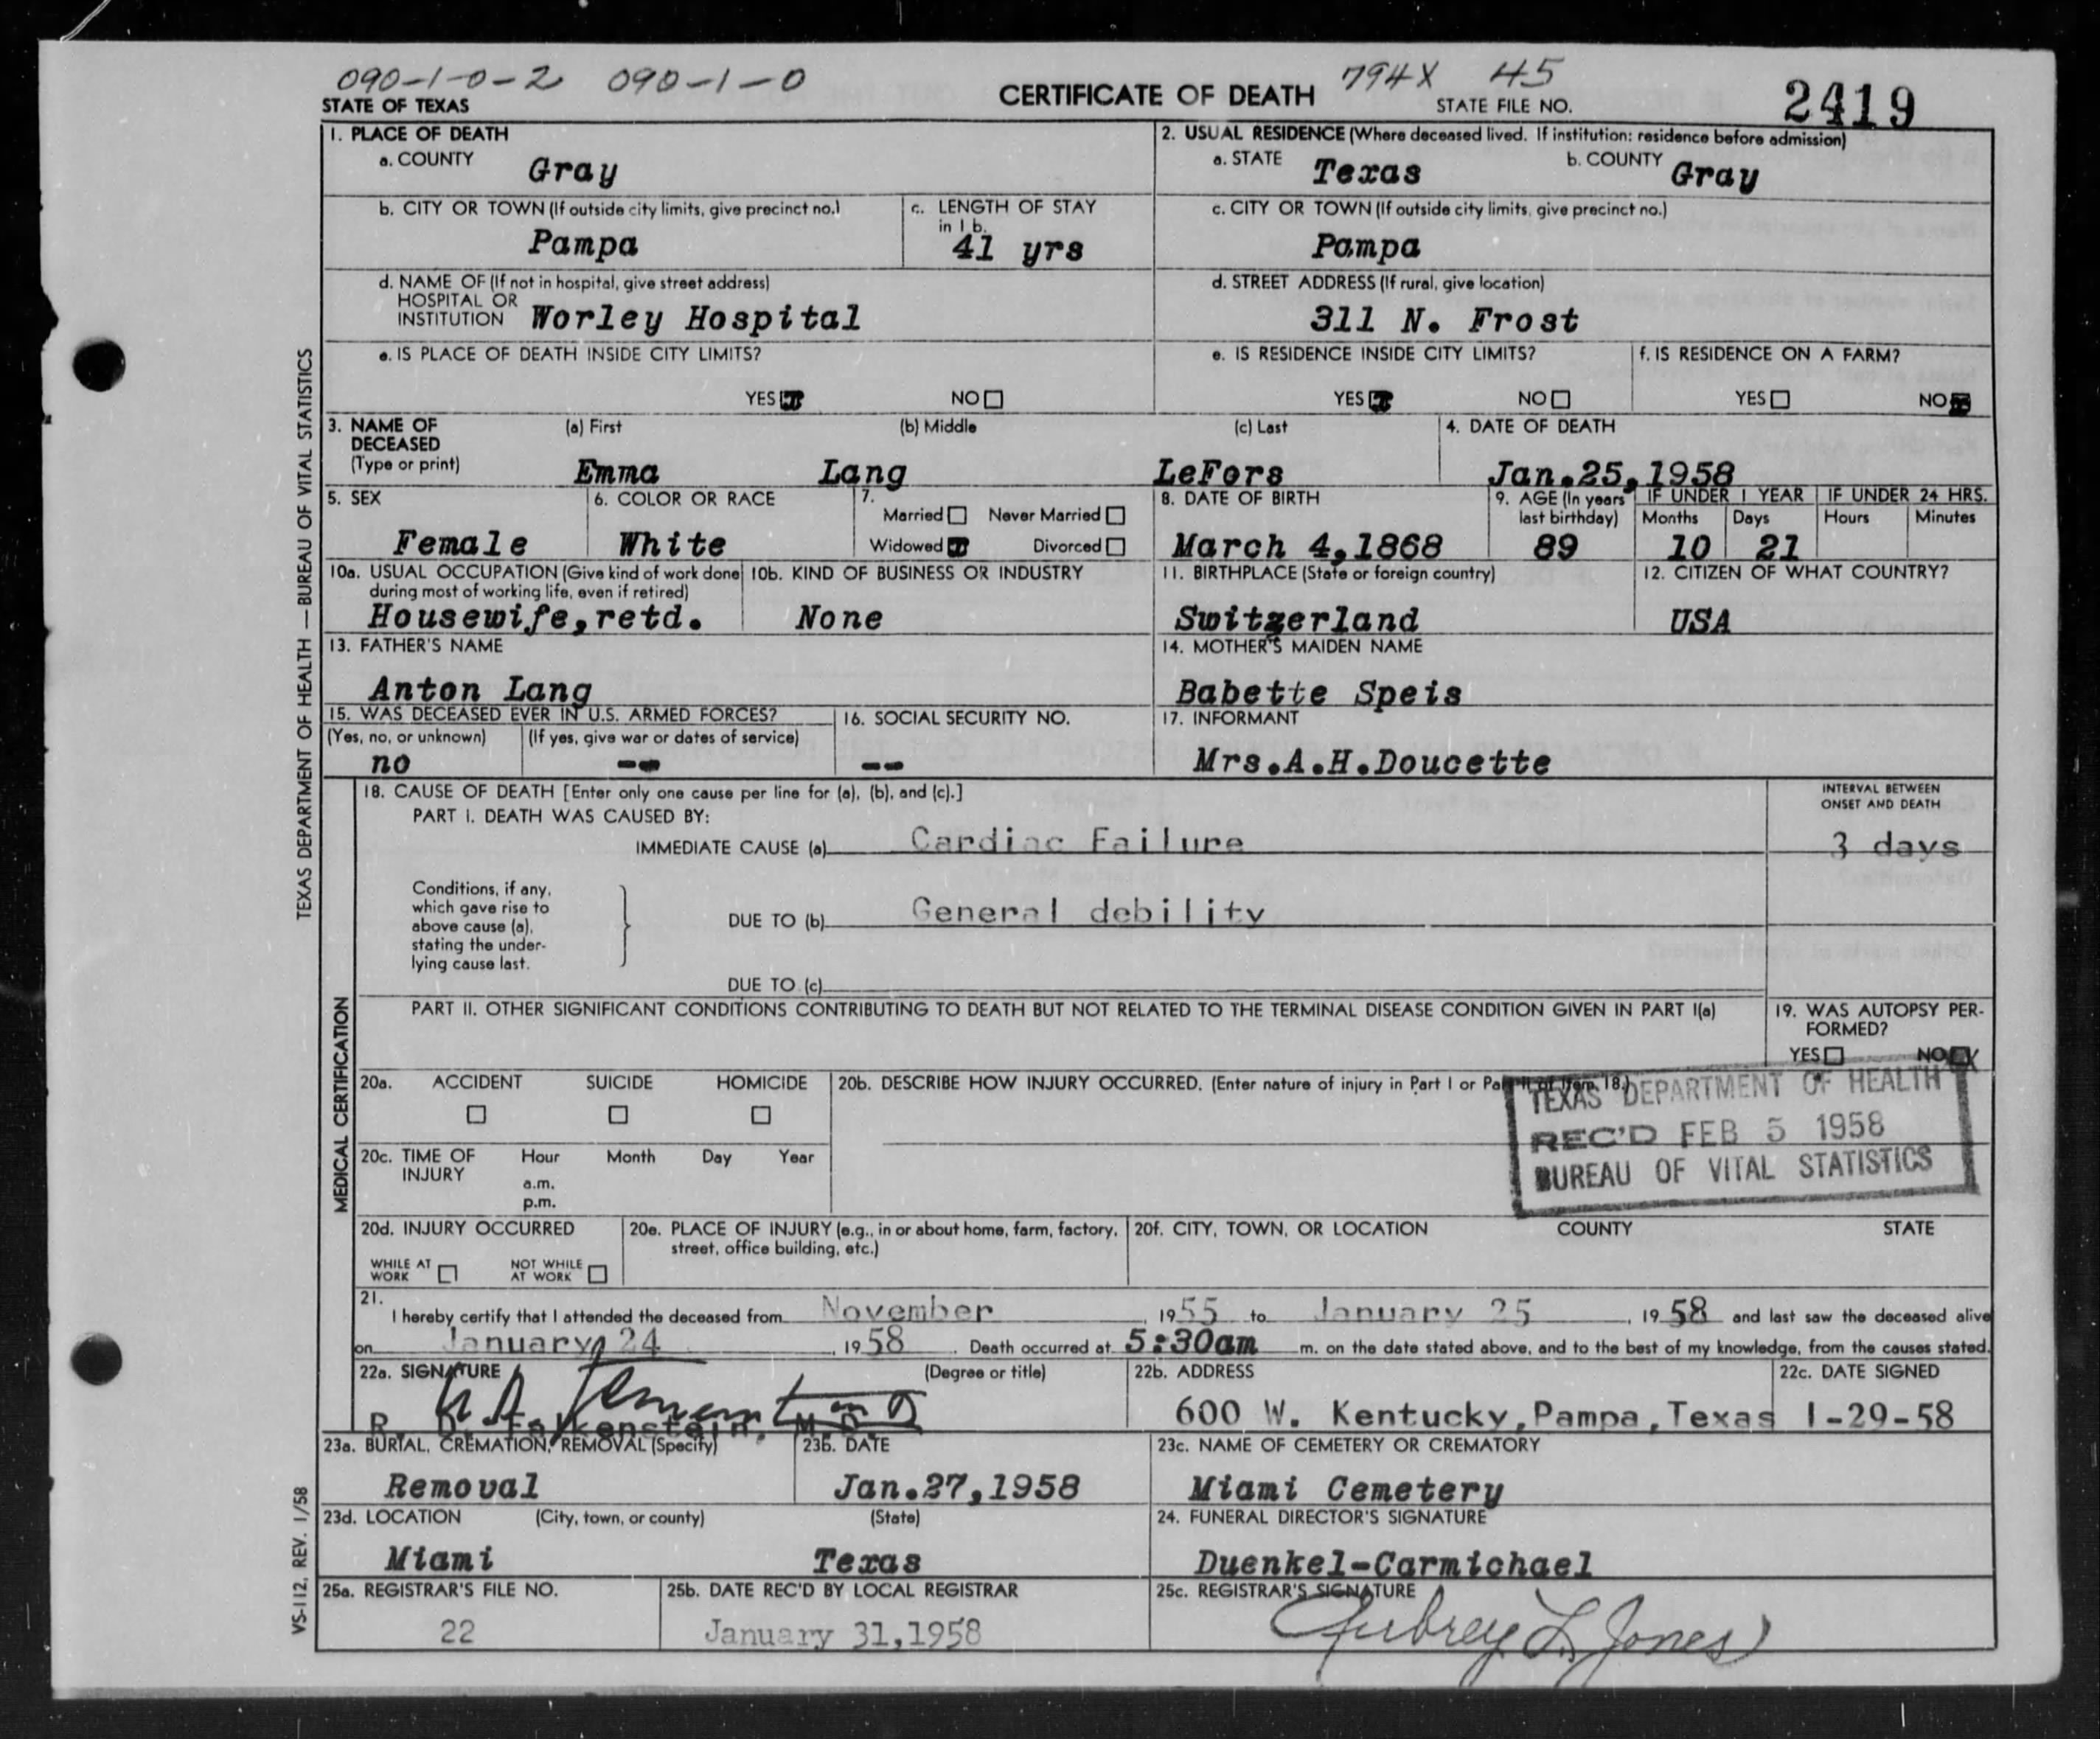 090-1-0-2 090-1-0 794X 45
STATE OF TEXAS CERTIFICATE OF DEATH STATE FILE NO. 2419
1. PLACE OF DEATH 2. USUAL RESIDENCE (Where deceased lived. If institution: residence before admission)
a. COUNTY Gray a. STATE Texas b. COUNTY Gray
b. CITY OR TOWN (If outside city limits, give precinct no.) c. LENGTH OF STAY in 1 b. c. CITY OR TOWN (If outside city limits, give precinct no.)
Pampa 41 yrs Pampa
d. NAME OF (If not in hospital, give street address) d. STREET ADDRESS (If rural, give location)
HOSPITAL OR
INSTITUTION Worley Hospital 311 N. Frost
e. IS PLACE OF DEATH INSIDE CITY LIMITS? e. IS RESIDENCE INSIDE CITY LIMITS? f. IS RESIDENCE ON A FARM?
YES NO YES NO YES NO
3. NAME OF DECEASED (a) First (b) Middle (c) Last 4. DATE OF DEATH
(Type or print) Emma Lang LeFors Jan.25,1958
5. SEX 6. COLOR OR RACE 7. 8. DATE OF BIRTH 9. AGE (In years last birthday) IF UNDER 1 YEAR IF UNDER 24 HRS.
Married Never Married Months Days Hours Minutes
Female White Widowed Divorced March 4,1868 89 10 21
10a. USUAL OCCUPATION (Give kind of work done during most of working life, even if retired) 10b. KIND OF BUSINESS OR INDUSTRY 11. BIRTHPLACE (State or foreign country) 12. CITIZEN OF WHAT COUNTRY?
Housewife,retd. None Switzerland USA
13. FATHER'S NAME 14. MOTHER'S MAIDEN NAME
Anton Lang Babette Speis
15. WAS DECEASED EVER IN U.S. ARMED FORCES? 16. SOCIAL SECURITY NO. 17. INFORMANT
(Yes, no, or unknown) (If yes, give war or dates of service)
no -- -- Mrs.A.H.Doucette
18. CAUSE OF DEATH [Enter only one cause per line for (a), (b), and (c).] INTERVAL BETWEEN ONSET AND DEATH
PART I. DEATH WAS CAUSED BY:
IMMEDIATE CAUSE (a) Cardiac Failure 3 days
Conditions, if any,
which gave rise to
above cause (a),
stating the under-
lying cause last.
DUE TO (b) General debility
DUE TO (c)
PART II. OTHER SIGNIFICANT CONDITIONS CONTRIBUTING TO DEATH BUT NOT RELATED TO THE TERMINAL DISEASE CONDITION GIVEN IN PART I(a) 19. WAS AUTOPSY PER-
FORMED?
YES NO X
20a. ACCIDENT SUICIDE HOMICIDE 20b. DESCRIBE HOW INJURY OCCURRED. (Enter nature of injury in Part I or Part II of Item 18.)
TEXAS DEPARTMENT OF HEALTH
REC'D FEB 5 1958
BUREAU OF VITAL STATISTICS
20c. TIME OF INJURY Hour Month Day Year
a.m.
p.m.
20d. INJURY OCCURRED 20e. PLACE OF INJURY (e.g., in or about home, farm, factory, street, office building, etc.) 20f. CITY, TOWN, OR LOCATION COUNTY STATE
WHILE AT WORK NOT WHILE AT WORK
21.
I hereby certify that I attended the deceased from November, 1955 to January 25, 1958 and last saw the deceased alive
on January 24, 1958. Death occurred at 5:30am m. on the date stated above, and to the best of my knowledge, from the causes stated.
22a. SIGNATURE (Degree or title) 22b. ADDRESS 22c. DATE SIGNED
R. D. Falkenstein, M.D. 600 W. Kentucky,Pampa,Texas 1-29-58
23a. BURIAL, CREMATION, REMOVAL (Specify) 23b. DATE 23c. NAME OF CEMETERY OR CREMATORY
Removal Jan.27,1958 Miami Cemetery
23d. LOCATION (City, town, or county) (State) 24. FUNERAL DIRECTOR'S SIGNATURE
Miami Texas Duenkel-Carmichael
25a. REGISTRAR'S FILE NO. 25b. DATE REC'D BY LOCAL REGISTRAR 25c. REGISTRAR'S SIGNATURE
22 January 31,1958 Aubrey L. Jones
TEXAS DEPARTMENT OF HEALTH — BUREAU OF VITAL STATISTICS
MEDICAL CERTIFICATION
VS-112, REV. 1/58